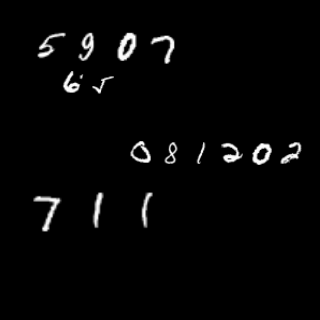 5907
65
081202
711